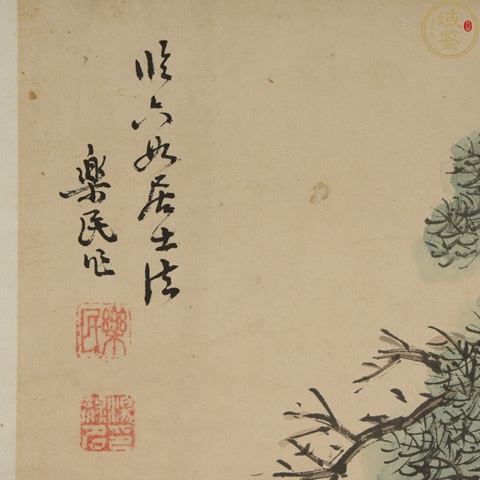 臨六如居士法
樂民作
樂民
域鉴